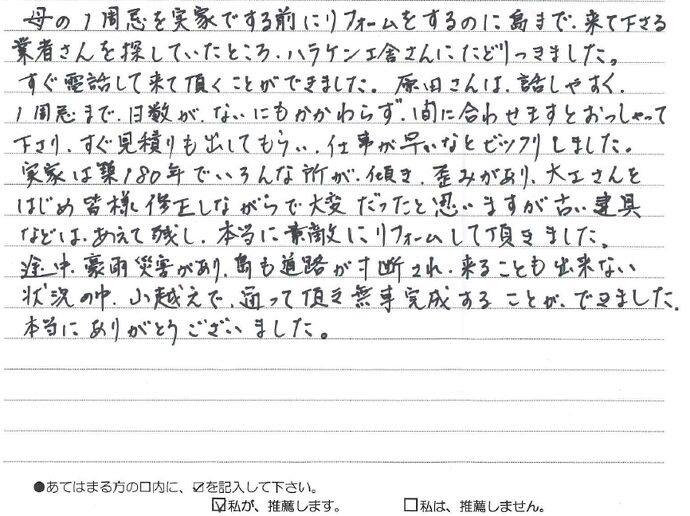 母の1周忌を実家でする前にリフォームをするのに島まで、来て下さる
業者さんを探していたところ、ハラケン工舎さんにたどりつきました。
すぐ電話して来て頂くことができました。原田さんは、話しやすく、
1周忌まで、日数が、ないにもかかわらず、間に合わせますとおっしゃって
下さり、すぐ見積りも出してもらい、仕事が早いなとビックリしました。
実家は築180年でいろんな所が、傾き、歪みがあり、大工さんを
はじめ皆様、修正しながらで大変だったと思いますが古い建具
などは、あえて残し、本当に素敵にリフォームして頂きました。
途中、豪雨災害があり、島も道路が寸断され、来ることも出来ない
状況の中、山越えで、通って頂き無事完成することが、できました。
本当にありがとうございました。
●あてはまる方の口内に、☑を記入して下さい。
☑私が、推薦します。 □私は、推薦しません。